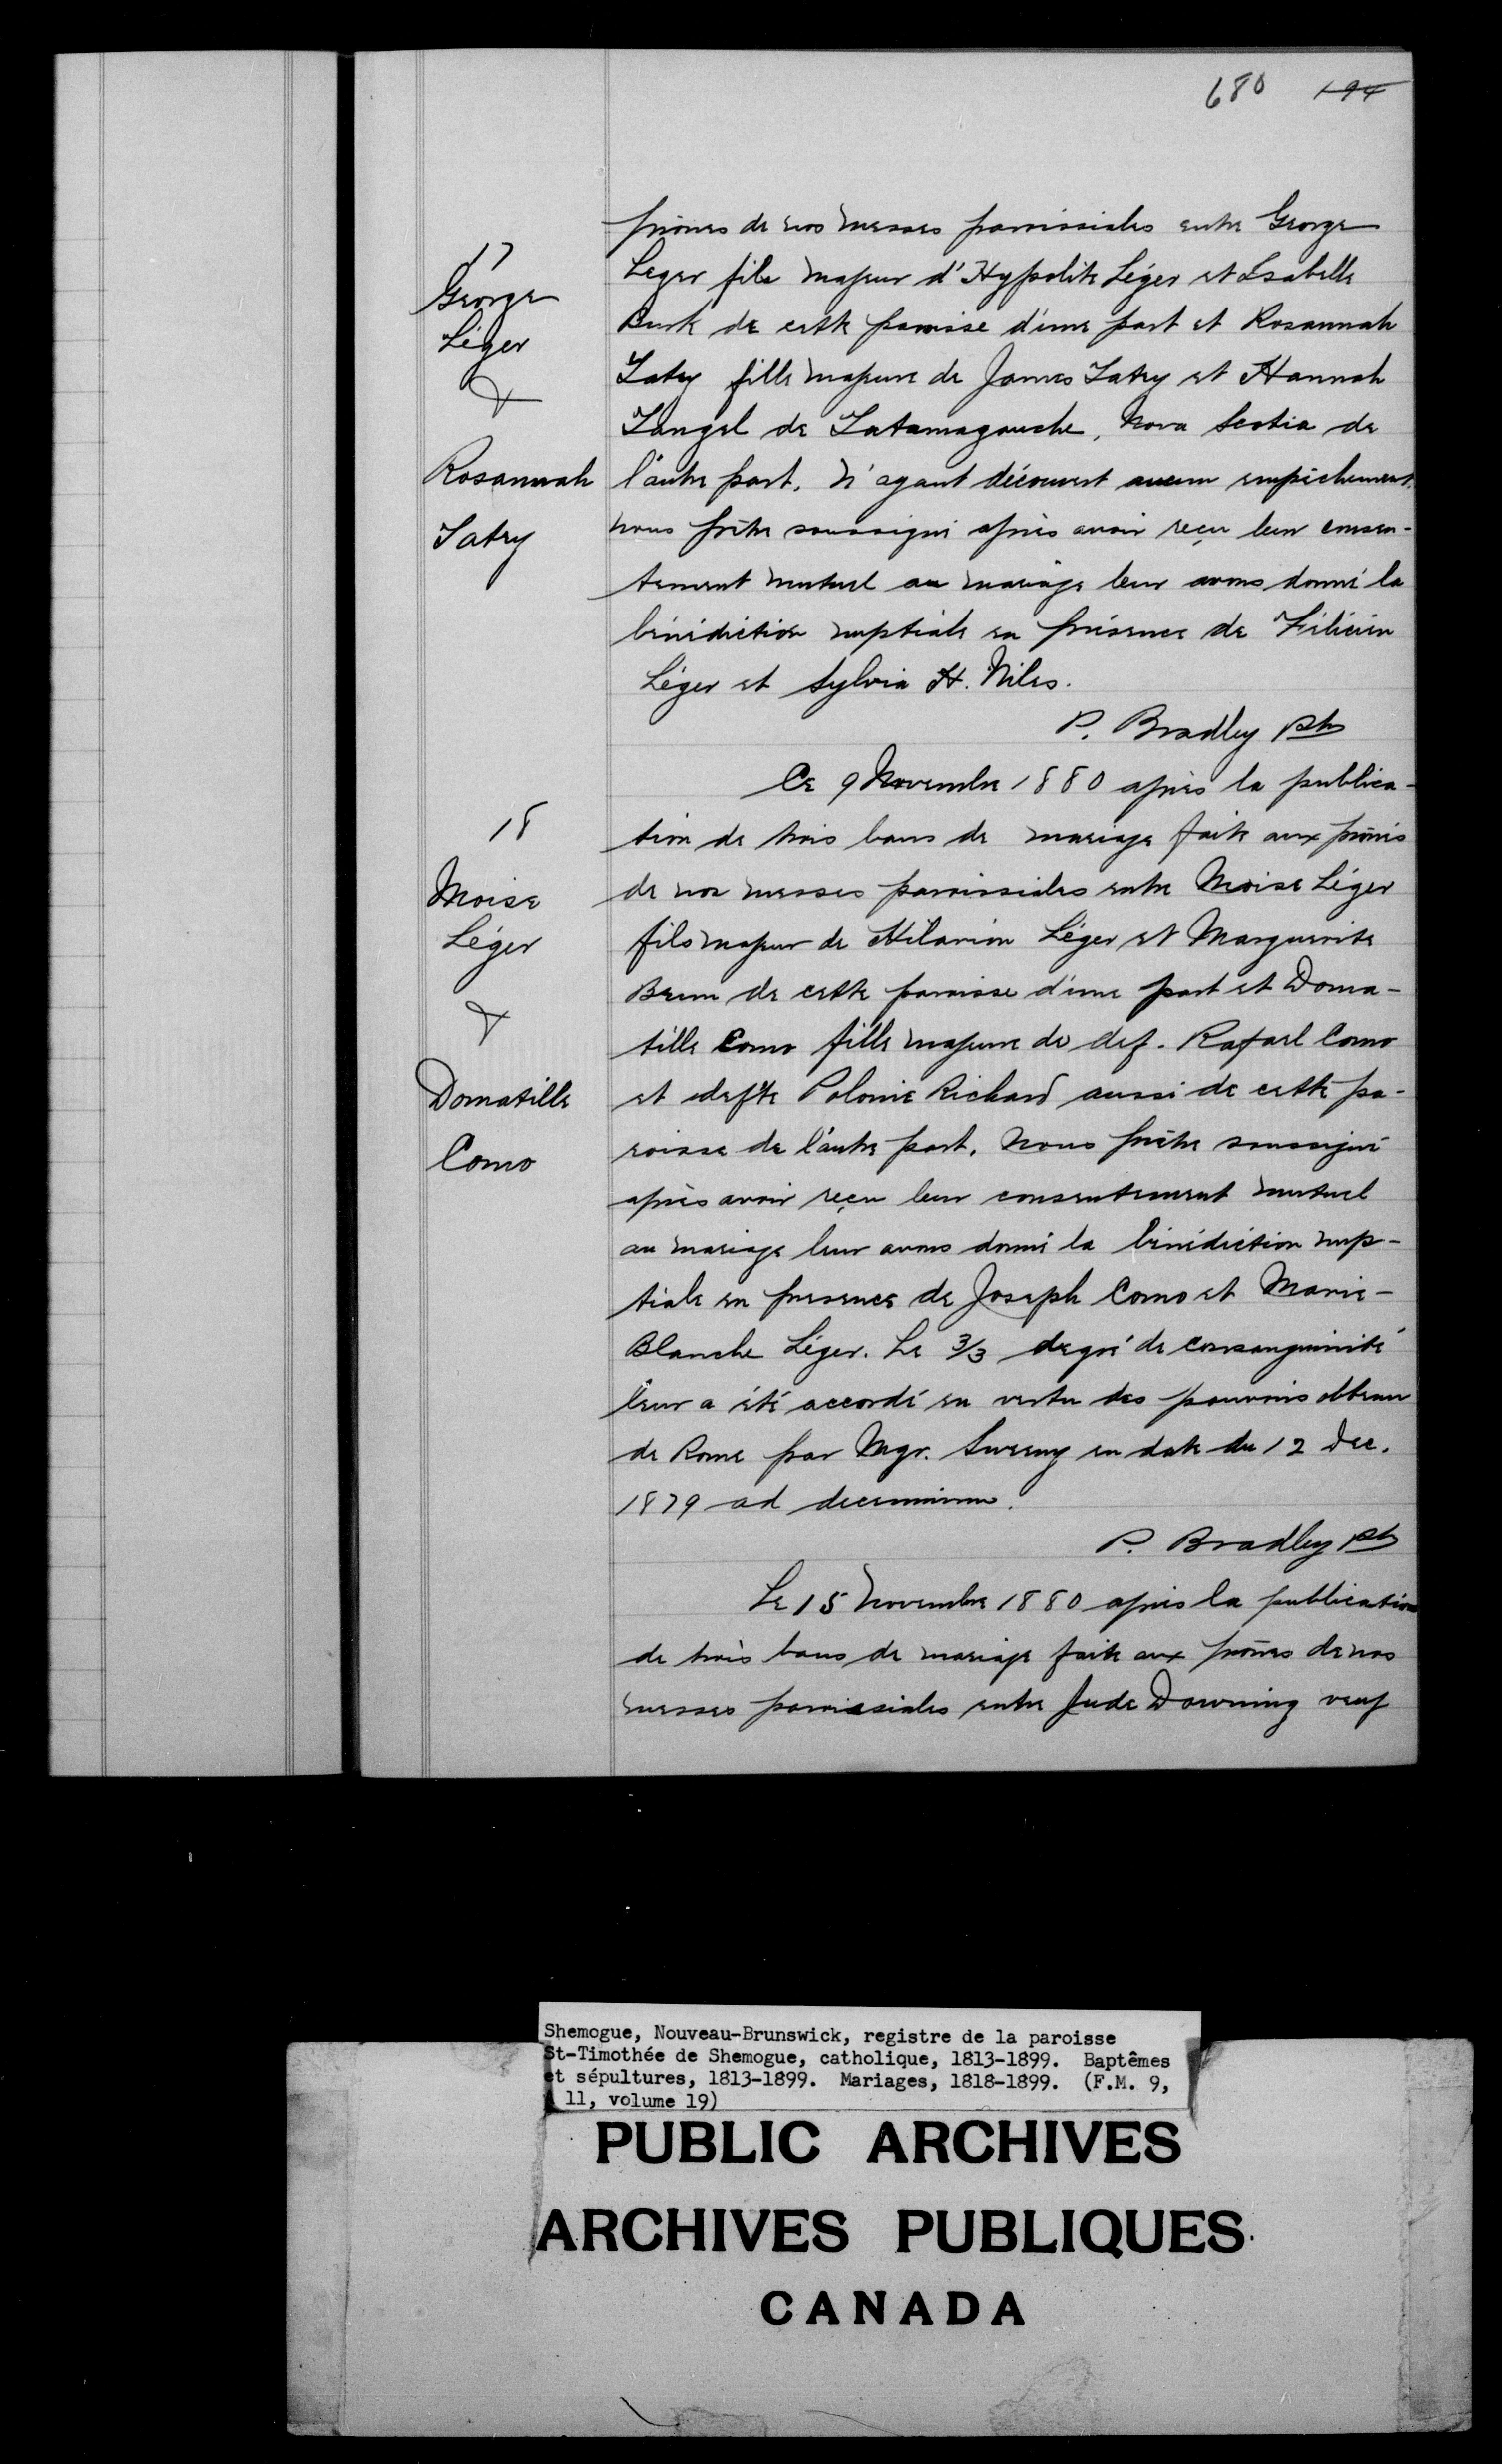 680 194
prônes de nos messes paroissiales entre George
17
George
Léger
&
Rosannah
Tatry
Leger fils majeur d'Hypolite Léger et Isabelle
Burk de cette paroisse d'une part et Rosannah
Tatry fille majeure de James Tatry et Hannah
Langel de Tatamagouche, Nova Scotia de
l'autre part. N'ayant découvert aucun empêchement,
nous prêtre soussigné après avoir reçu leur consen-
tement mutuel au mariage leur avons donné la
bénédiction nuptiale en présence de Félicien
Léger et Sylvia H. Niles.
P. Bradley ptr
18
Moise
Léger
&
Domatille
Como
Ce 9 Novembre 1880 après la publica-
tion de trois bans de mariage faite aux prônes
de nos messes paroissiales entre Moise Léger
fils majeur de Hilarion Léger et Marguerite
Brun de cette paroisse d'une part et Doma-
tille Como fille majeure de def. Rafael Como
et defte Polonie Richard aussi de cette pa-
roisse de l'autre part. Nous prêtre soussigné
après avoir reçu leur consentement mutuel
au mariage leur avons donné la bénédiction nup-
tiale en presence de Joseph Como et Marie-
Blanche Léger. Le 3/3 degré de consanguinité
leur a été accordé en vertu des pouvoirs obtenu
de Rome par Mgr. Sweeny en date du 12 Dec.
1879 ad decennium.
P. Bradley ptr
Le 15 Novembre 1880 après la publication
de trois bans de mariage faite aux prônes de nos
messes paroissiales entre Jude Downing veuf
Shemogue, Nouveau-Brunswick, registre de la paroisse
St-Timothée de Shemogue, catholique, 1813-1899. Baptêmes
et sépultures, 1813-1899. Mariages, 1818-1899. (F.M. 9,
11, volume 19)
PUBLIC ARCHIVES
ARCHIVES PUBLIQUES
CANADA